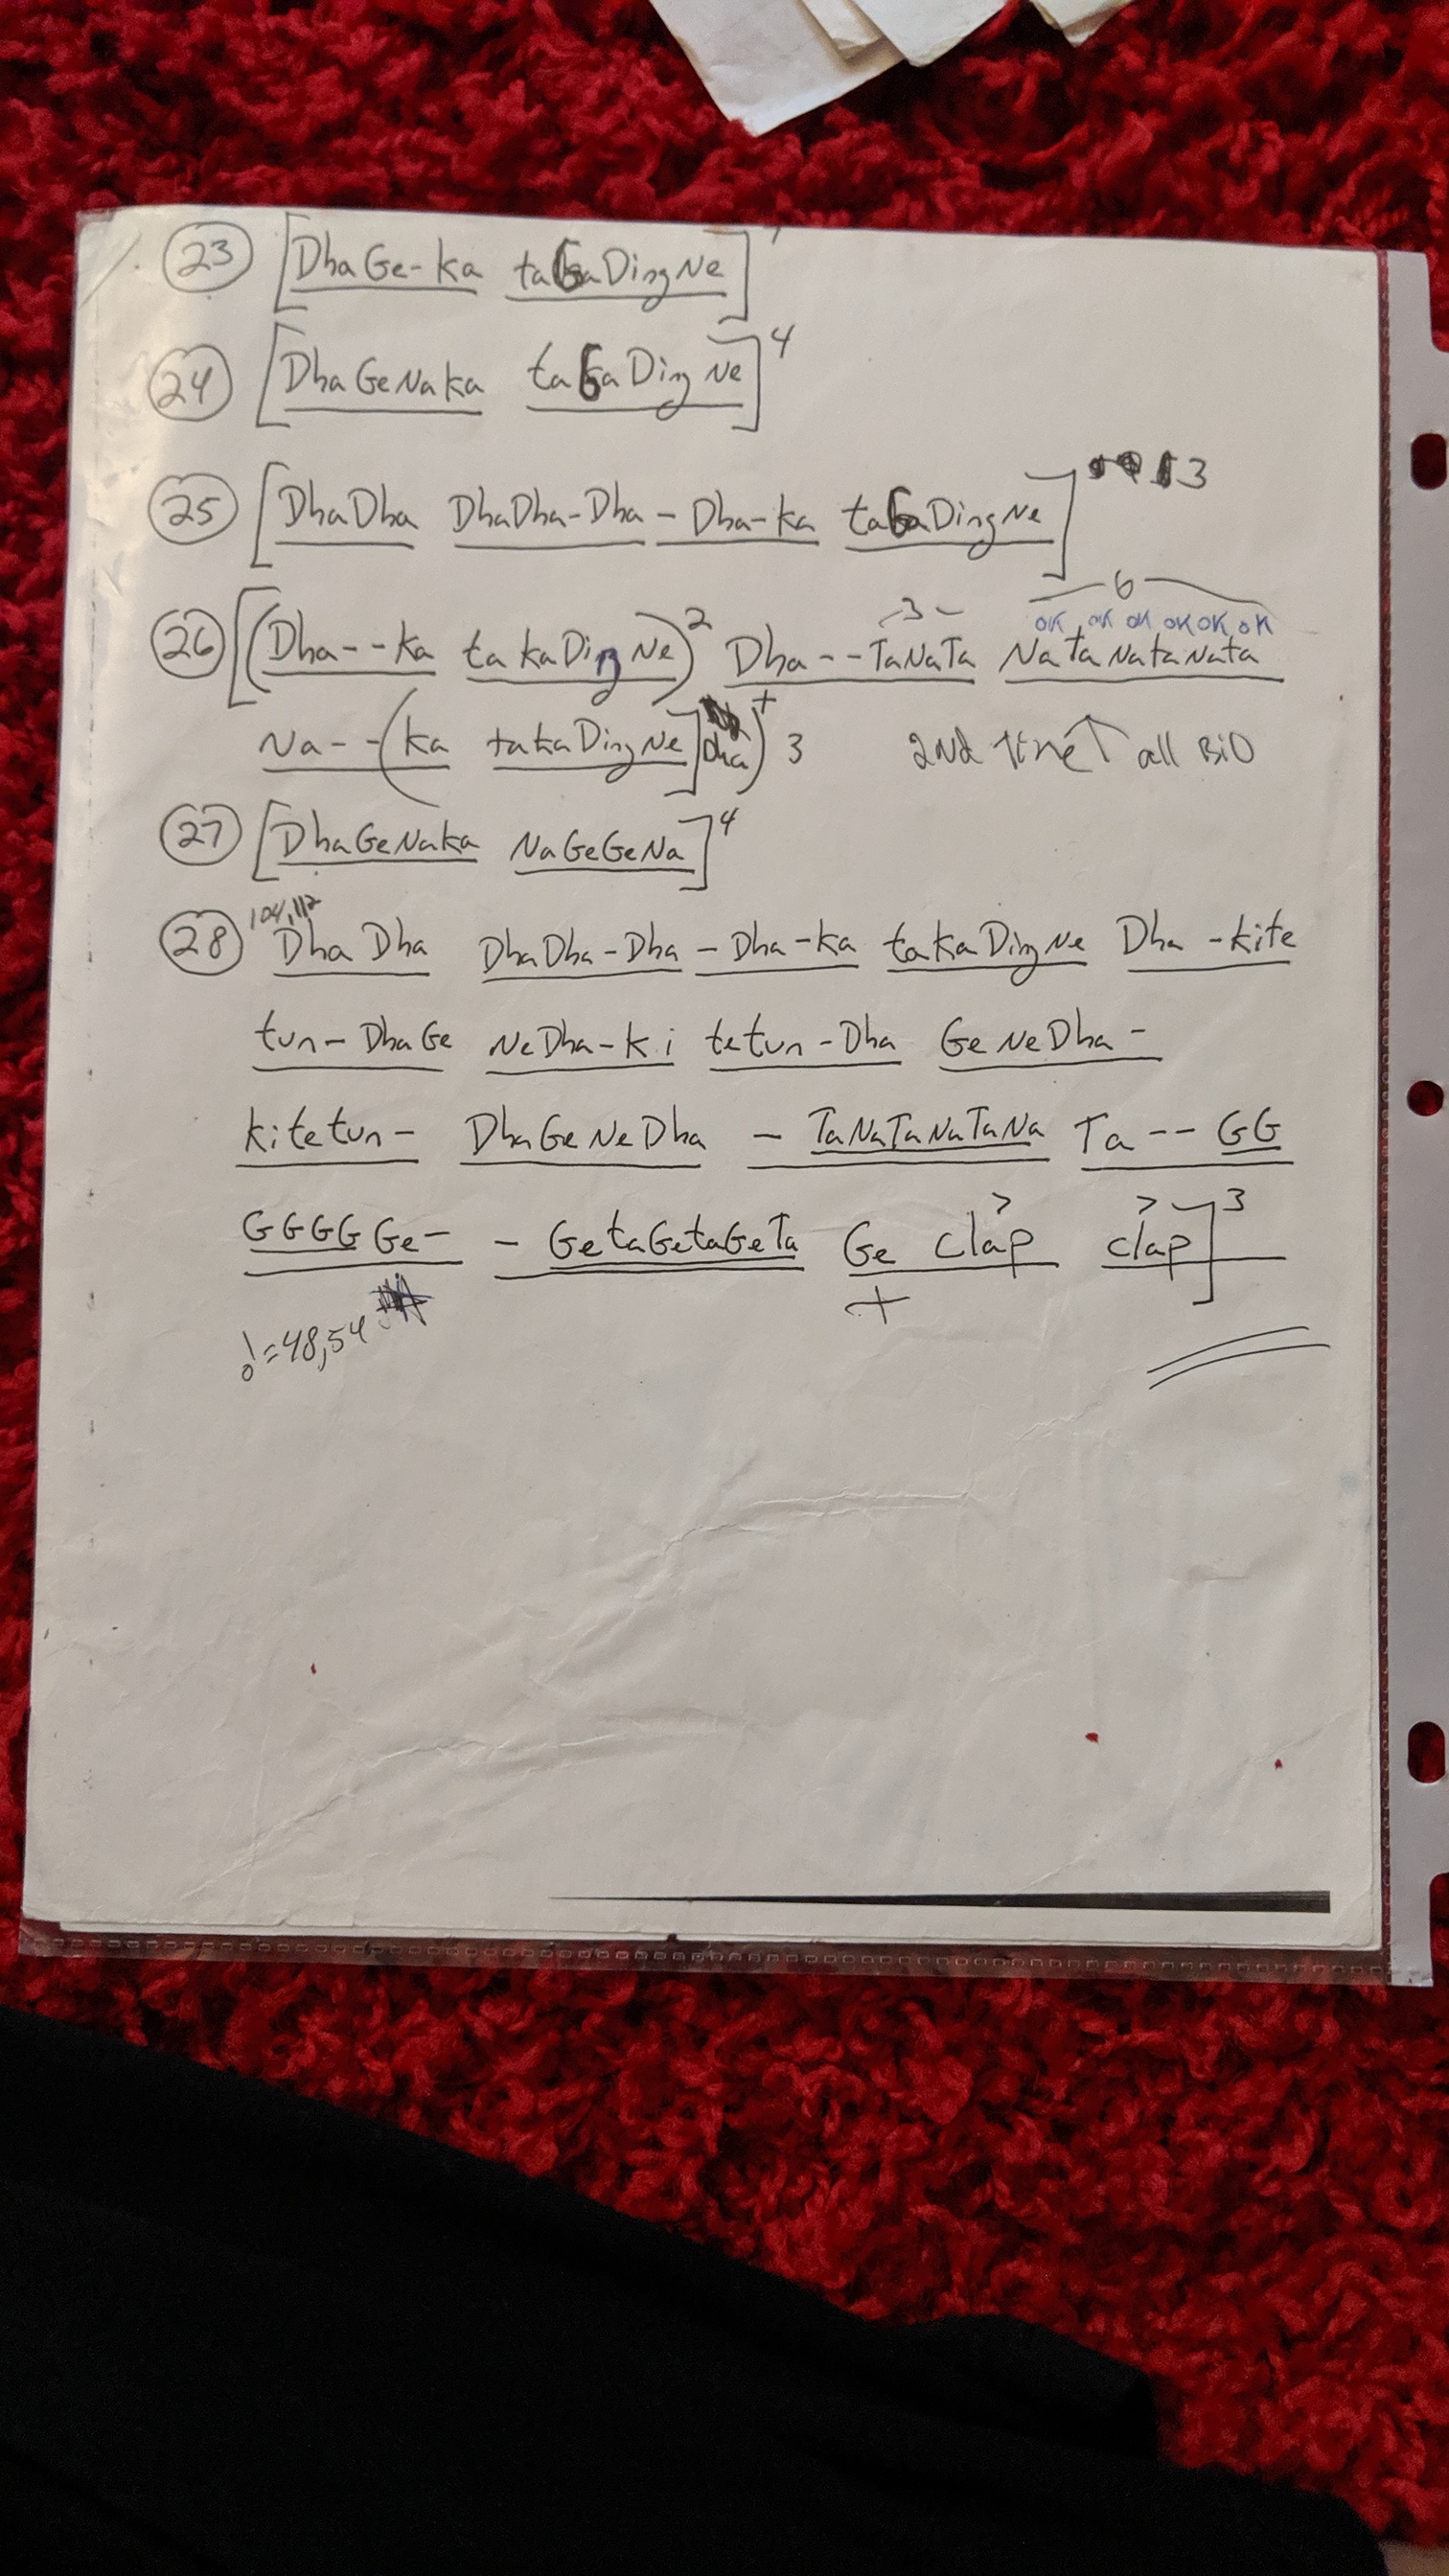 23 [DhaGe-ka taGaDingNe]
24 [DhaGeNaka taGaDingNe]4
25 [DhaDha DhaDha-Dha - Dha-ka taGaDingNe] 3
6
3 OK OK OK OK OK OK
26 [(Dha--ka takaDingNe)2 Dha--TaNaTa NaTaNataNata
Na--(ka takaDingNe]dha)+ 3 2nd time ↑ all BiO
27 [DhaGeNaka NaGeGeNa]4
104,112
28 Dha Dha DhaDha-Dha - Dha-ka takaDingNe Dha -kite
tun- DhaGe NeDha-ki tetun-Dha GeNeDha-
kitetun- DhaGeNeDha - TaNaTaNaTaNa Ta -- GG
GGGG Ge- - GetaGetaGeTa Ge clap clap]3
+
=48,54